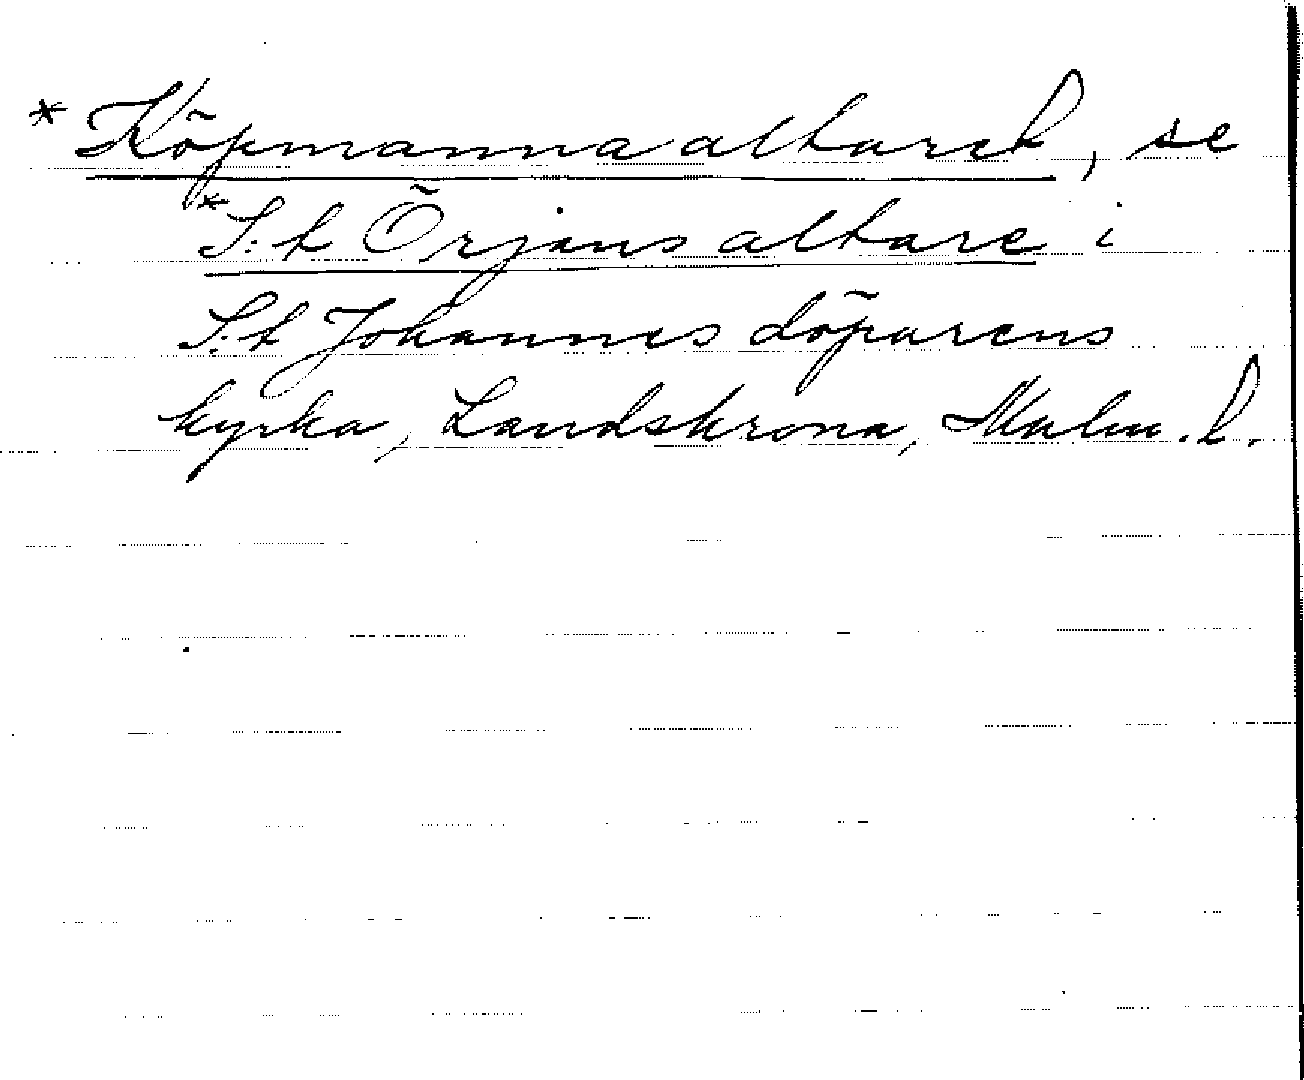 * Köpmannaaltaret, se
* S:t Örjans altare i
S:t Johannes döparens
kyrka, Landskrona, Malm. l.